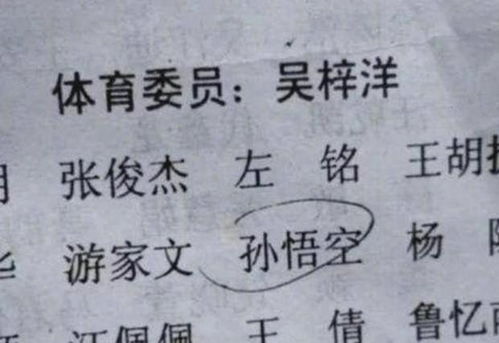 体育委员：吴梓洋
张俊杰 左 铭 王胡
游家文 孙悟空 杨
江佩佩 王 倩 鲁忆